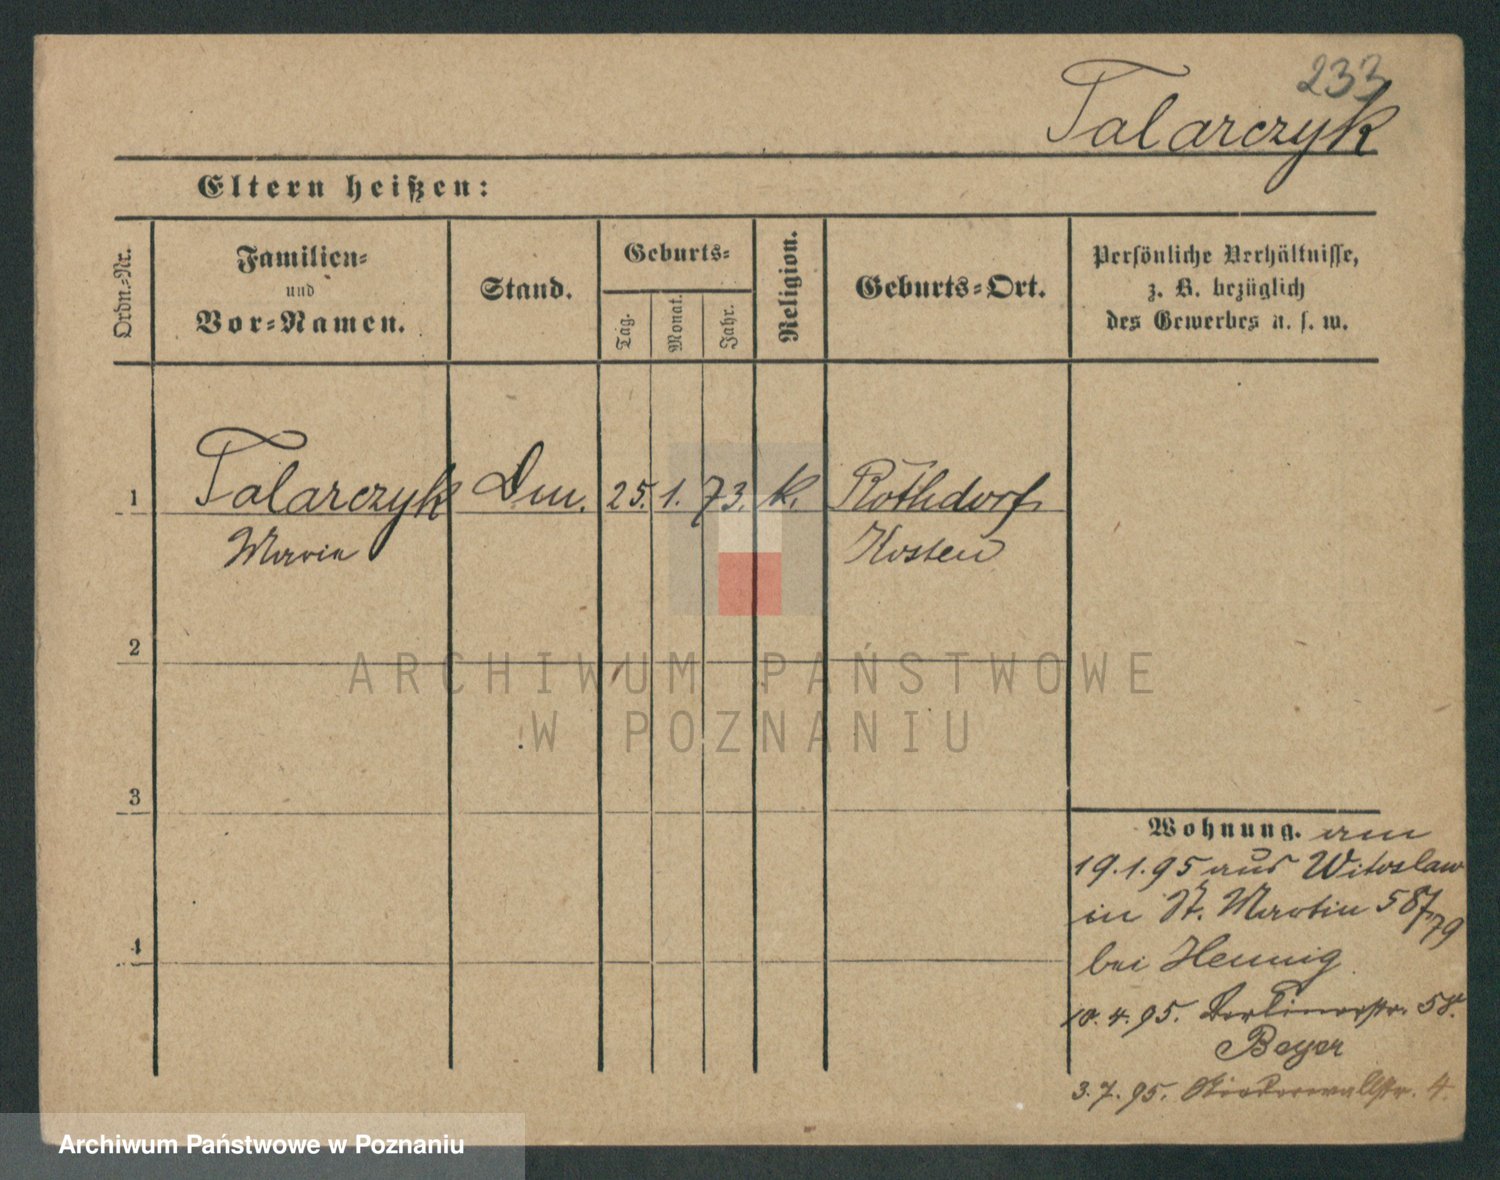 233
Talarczyk
Eltern heißen:
Ordn.-Nr.
Familien-
und
Vor-Namen.
Stand.
Geburts-
Tag.
Monat.
Jahr.
Religion.
Geburts-Ort.
Persönliche Verhältnisse,
z. B. bezüglich
des Gewerbes u. s. w.
1 Talarczyk 25. 1. 73. k. Rothdorf
Marie Kosten
2
ARCHIWUM PAŃSTWOWE
W POZNANIU
3
Wohnung. am
19.1.95 aus Witoslaw
in St. Martin 58/79
bei Hennig
4
10.4.95. Berlinerstr. 58.
Beyer
3.7.95. Niederwallstr. 4.
Archiwum Państwowe w Poznaniu